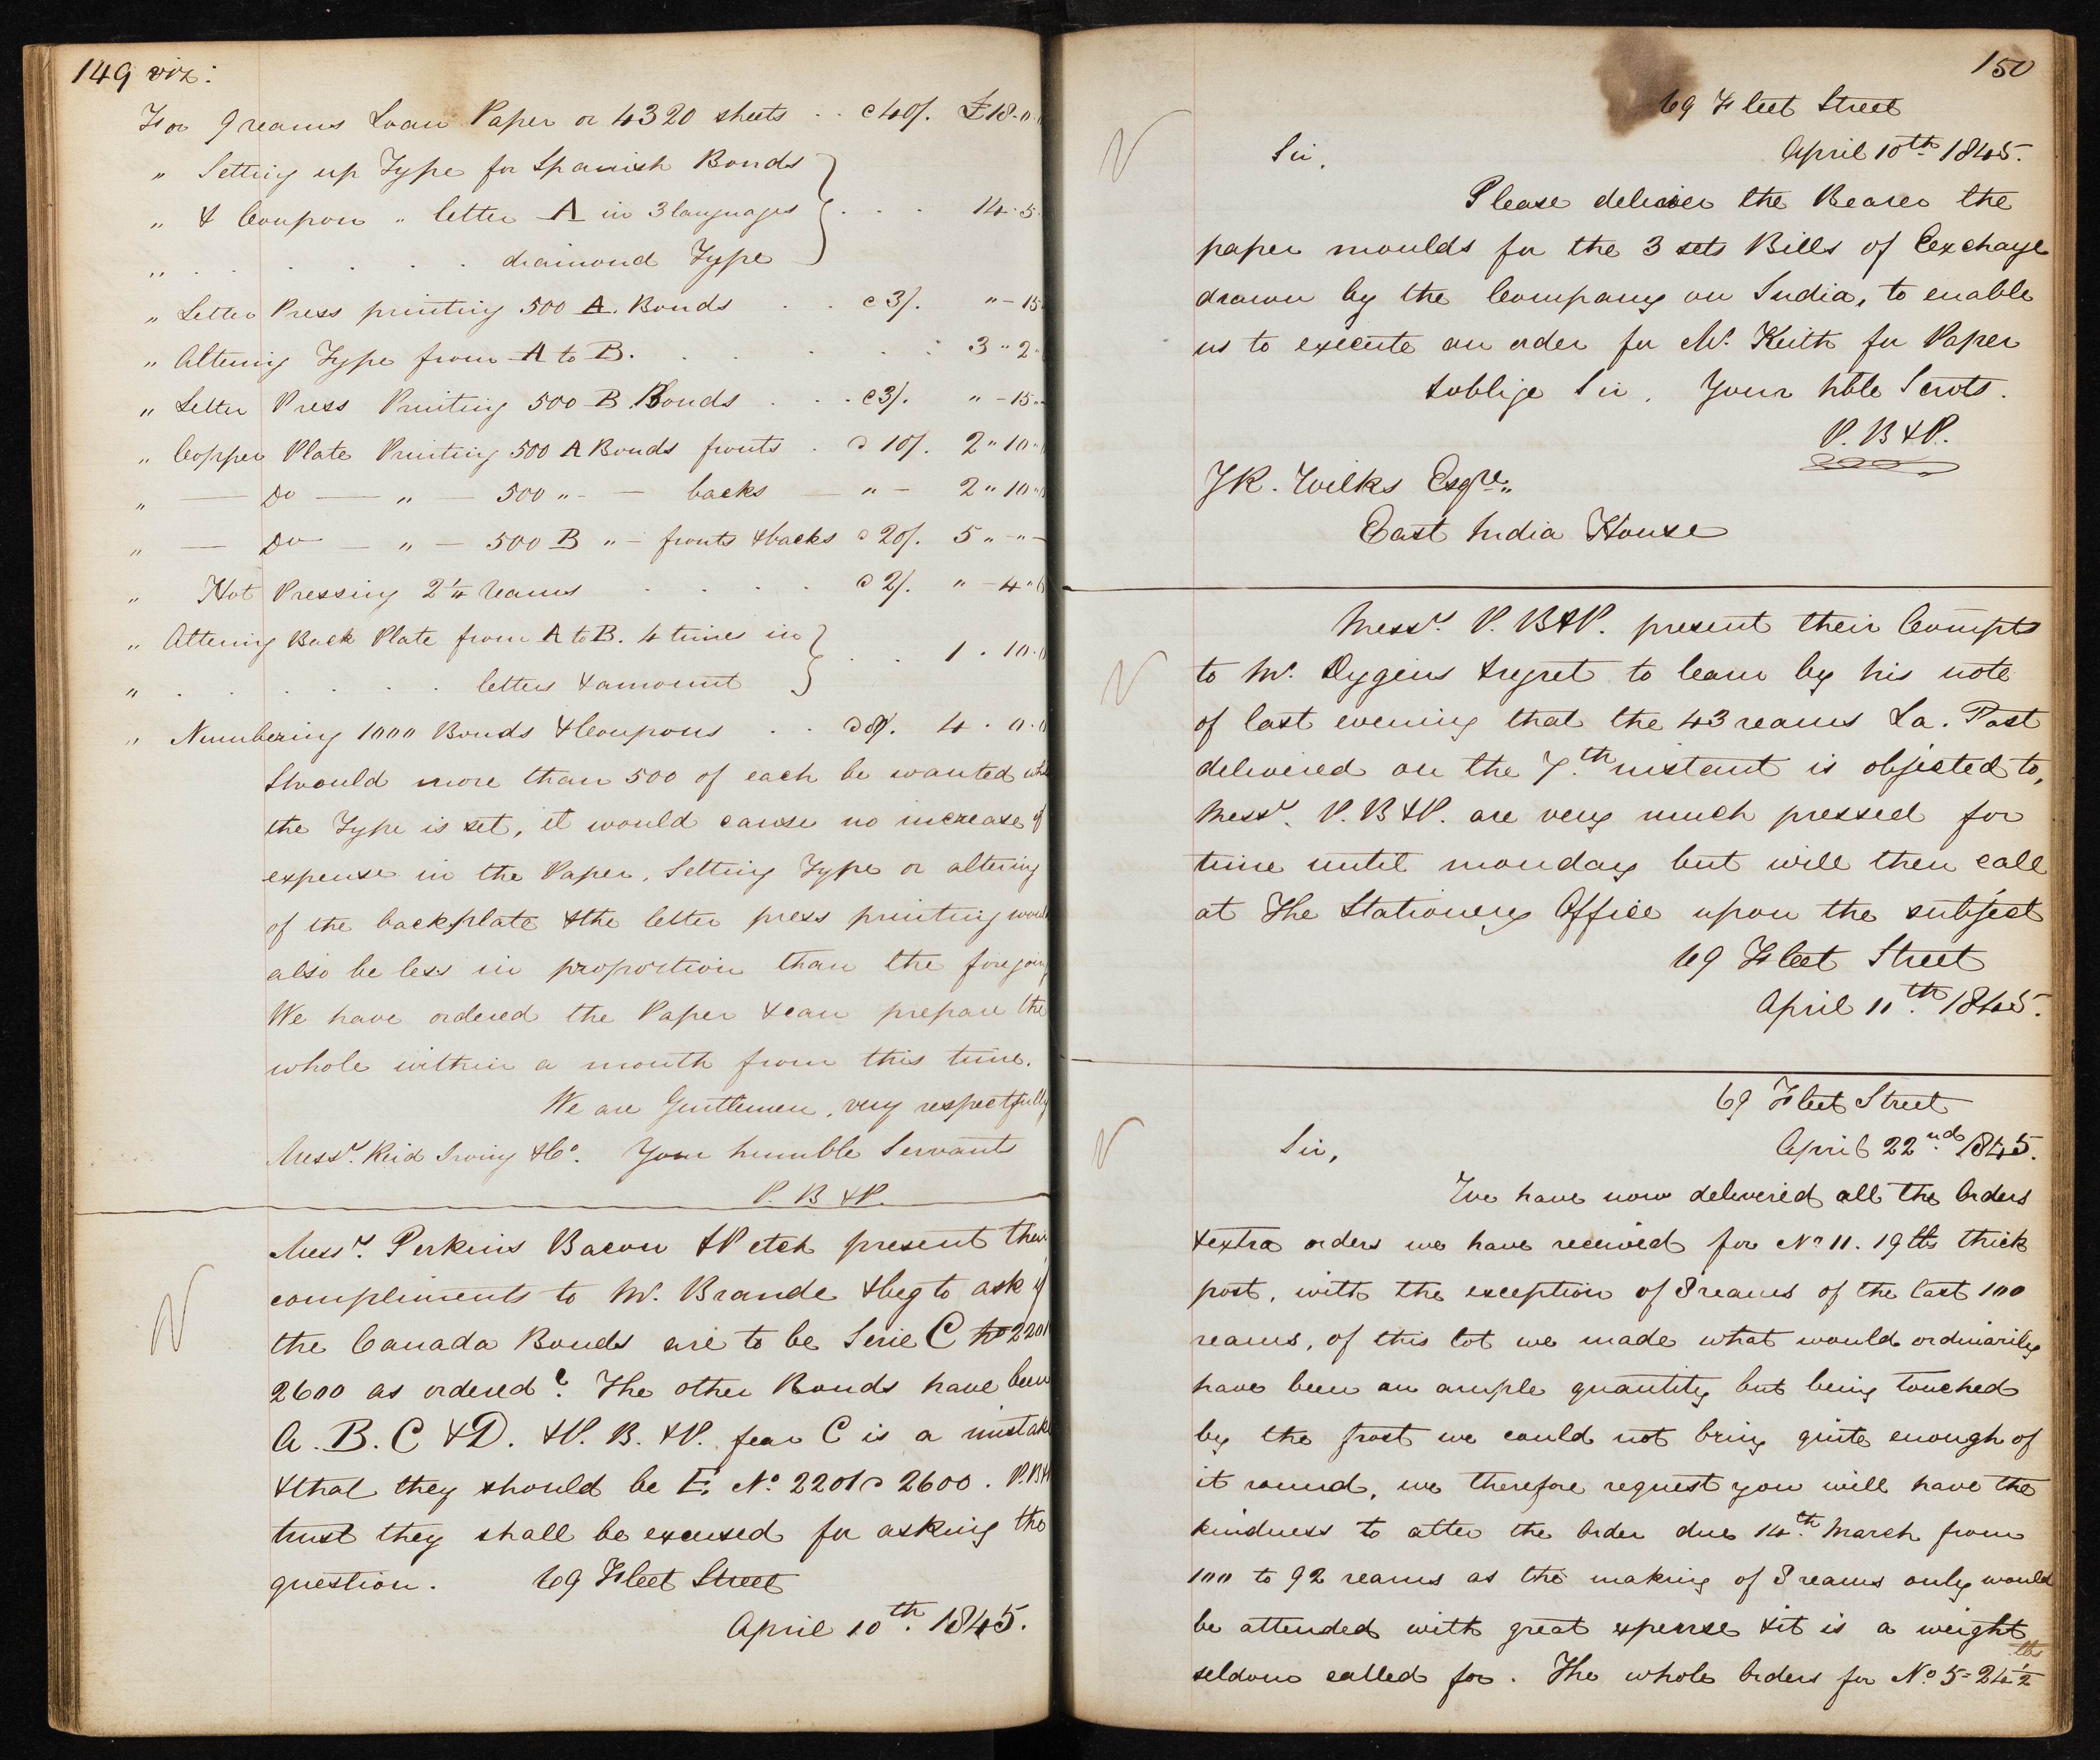 149 viz:
For 9 reams Loan Paper or 4320 sheets . . @ 40/. £18-0
" Setting up Type for Spanish Bonds
" & Coupon " letter A in 3 languages . . . 14 " 5
" . . . . . . diamond Type
" Letter Press printing 500 A. Bonds . . @ 3/. " - 15
" Altering Type from A to B. . . . . . 3 " 2 "
" Letter Press Printing 500 B Bonds . . . @ 3/. " - 15 "
" Copper Plate Printing 500 A Bonds fronts . @ 10/. 2 " 10 "
" — Do — " — 500 " - — backs — " - 2 " 10 "
" — Do — " — 500 B " - fronts & backs @ 20/. 5 " - " -
" Hot Pressing 2 1/4 reams . . . . @ 2/. " - 4 " 6
" Altering Back Plate from A to B. 4 times in . . 1 . 10 . 0
" . . . . . . letters & amount
" Numbering 1000 Bonds & Coupons . . @ 8/. 4 . 0 . 0
Should more than 500 of each be wanted
the Type is set, it would cause no increase of
expense in the Paper, Setting Type or altering
of the backplate & the letter press printing would
also be less in proportion than the foregoing
We have ordered the Paper & can prepare the
whole within a month from this time.
We are Gentlemen, very respectfully
Messrs. Reid Irving & Co. Your humble Servants
P. B & P.
Messrs. Perkins Bacon & Petch present their
compliments to Mr. Brande & beg to ask if
the Canada Bonds are to be Serie C No 2201
2600 as ordered? The other Bonds have been
A. B. C & D. & P. B. & P. fear C is a mistake
& that they should be E. No. 2201 @ 2600. P. B &
trust they shall be excused for asking the
question. 69 Fleet Street
April 10th. 1845.
150
69 Fleet Street
Sir, April 10th 1845.
Please deliver the Bearer the
paper moulds for the 3 sets Bills of Exchange
drawn by the Company on India, to enable
us to execute an order for Mr. Keith for Paper
& oblige Sir, Your hble Servts.
P. B & P.
J R. Wilks Esqre.
East India House
Messrs. P. B & P. present their Compts
to Mr. Dyggens & regret to learn by his note
of last evening that the 43 reams La. Post
delivered on the 7th. instant is objected to,
Messrs. P. B & P. are very much pressed for
time until monday but will then call
at The Stationery Office upon the subject
69 Fleet Street
April 11th. 1845.
69 Fleet Street
Sir, April 22nd. 1845.
We have now delivered all the Orders
& extra orders we have received for No 11. 19 lbs thick
post, with the exception of 8 reams of the last 100
reams, of this lot we made what would ordinarily
have been an ample quantity but being touched
by the frost we could not bring quite enough of
it round, we therefore request you will have the
kindness to alter the Order due 14th. March from
100 to 92 reams as the making of 8 reams only would
be attended with great expense & it is a weight
seldom called for. The whole Orders for No 5 = 24 1/2 lbs